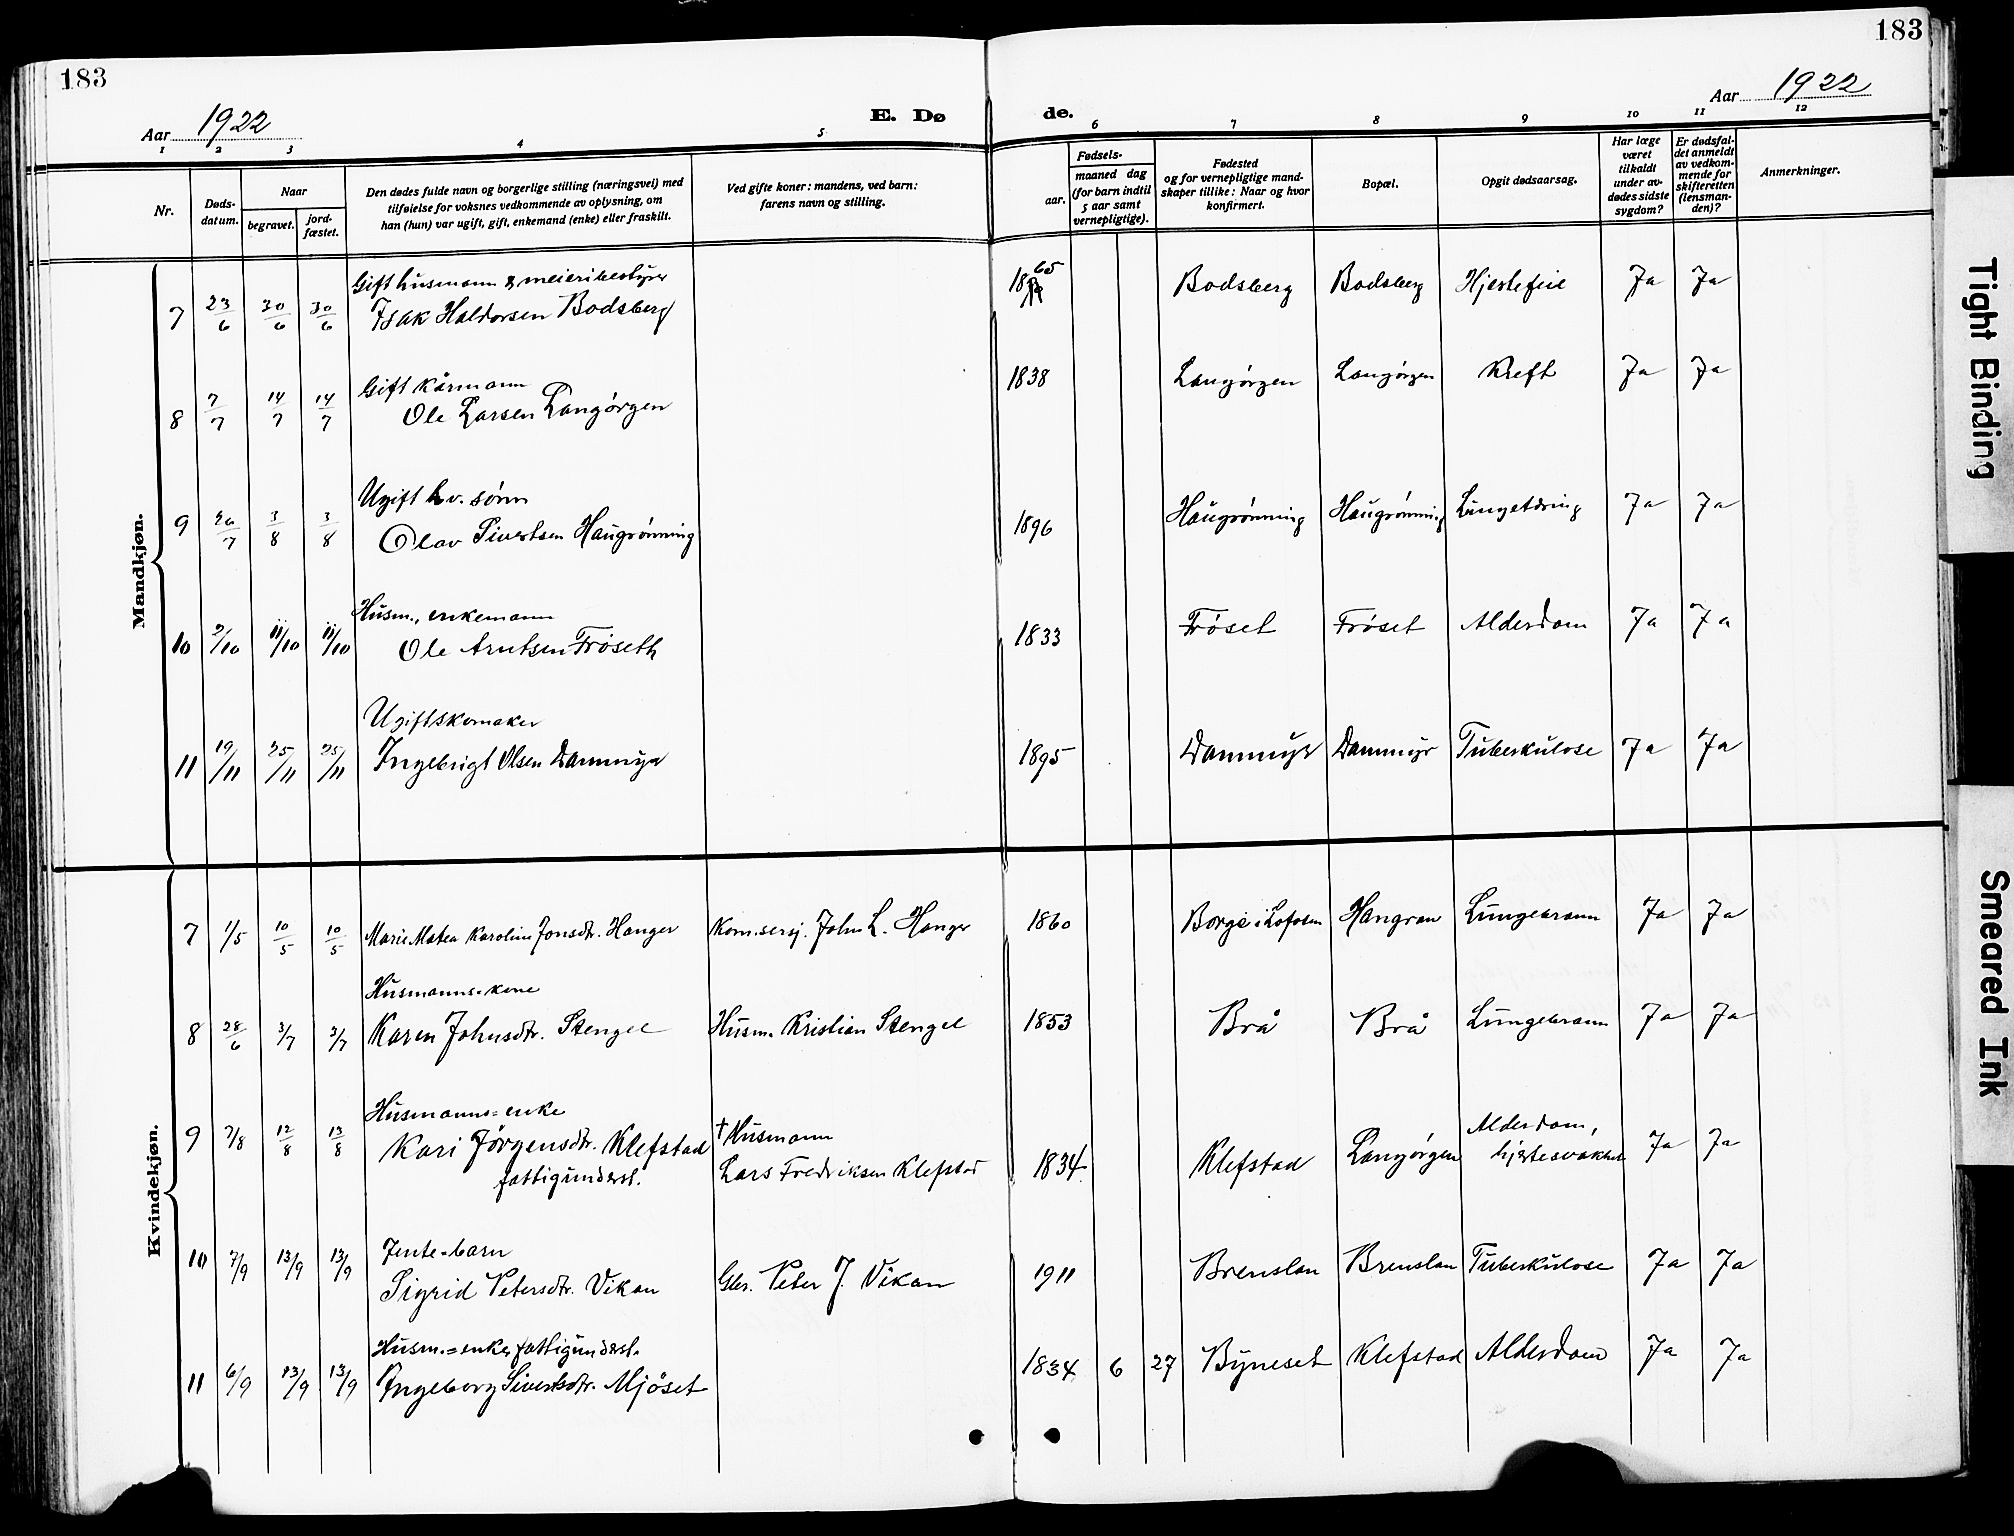 183
183
Aar 1922
E. Dø
de.
Aar 1922
1 2 3 4 5
6 7 8 9 10 11 12
Nr.
Døds-
datum.
Naar
begravet.
jord-
fæstet.
Den dødes fulde navn og borgerlige stilling (næringsvei) med
tilføielse for voksnes vedkommende av oplysning, om
han (hun) var ugift, gift, enkemand (enke) eller fraskilt.
Ved gifte koner: mandens, ved barn:
farens navn og stilling.
Fødsels-
aar.
maaned dag
(for barn indtil
5 aar samt
vernepligtige).
Fødested
og for vernepligtige mand-
skaper tillike: Naar og hvor
konfirmert.
Bopæl.
Opgit dødsaarsag.
Har læge
været
tilkaldt
under av-
dødes sidste
sygdom?
Er dødsfal-
det anmeldt
av vedkom-
mende for
skifteretten
(lensman-
den)?
Anmerkninger.
Mandkjøn.
Gift husmann & meieribestyrer
7 23/6 30/6 30/6 Isak Haldorsen Bodsberg 1865 Bodsberg Bodsberg Hjertefeil Ja Ja
Gift kårmann
8 7/7 14/7 14/7 Ole Larsen Langørgen 1838 Langørgen Langørgen Kreft Ja Ja
Ugift hv. sønn
9 26/7 3/8 3/8 Olav Sivertsen Haugrønning 1896 Haugrønning Haugrønning Ja Ja
Husm., enkemann
10 2/10 11/10 11/10 Ole Arntsen Frøseth 1833 Frøset Frøset Alderdom Ja Ja
Ugift skomaker
11 19/11 25/11 25/11 Ingebrigt Olsen Dammyr 1895 Dammyr Dammyr Tuberkulose Ja Ja
Kvindekjøn.
7 1/5 10/5 10/5 Marie Matea Karoline Jonsdtr. Hanger Kom.sersj. John L. Hanger 1860 Borge i Lofoten Hangran Lungebrann Ja Ja
Husmanns-kone
8 28/6 3/7 3/7 Karen Johnsdtr. Stengel Husm. Kristian Stengel 1853 Brå Brå Lungebrann Ja Ja
Husmanns=enke
9 7/8 12/8 13/8 Kari Jörgensdtr. Klefstad
fattigunderst.
† Husmann
Lars Fredriksen Klefstad 1834 Klefstad Langørgen Alderdom,
hjertesvakhet Ja Ja
Jente=barn
10 7/9 13/9 13/9 Sigrid Petersdtr. Vikan Gbr. Peter J. Vikan 1911 Brenslan Brenslan Tuberkulose Ja Ja
Husm.=enke, fattigunderst.
11 6/9 13/9 13/9 Ingeborg Sivertsdtr. Mjöset 1834 6 27 Byneset Klefstad Alderdom Ja Ja
Tight Binding
Smeared Ink